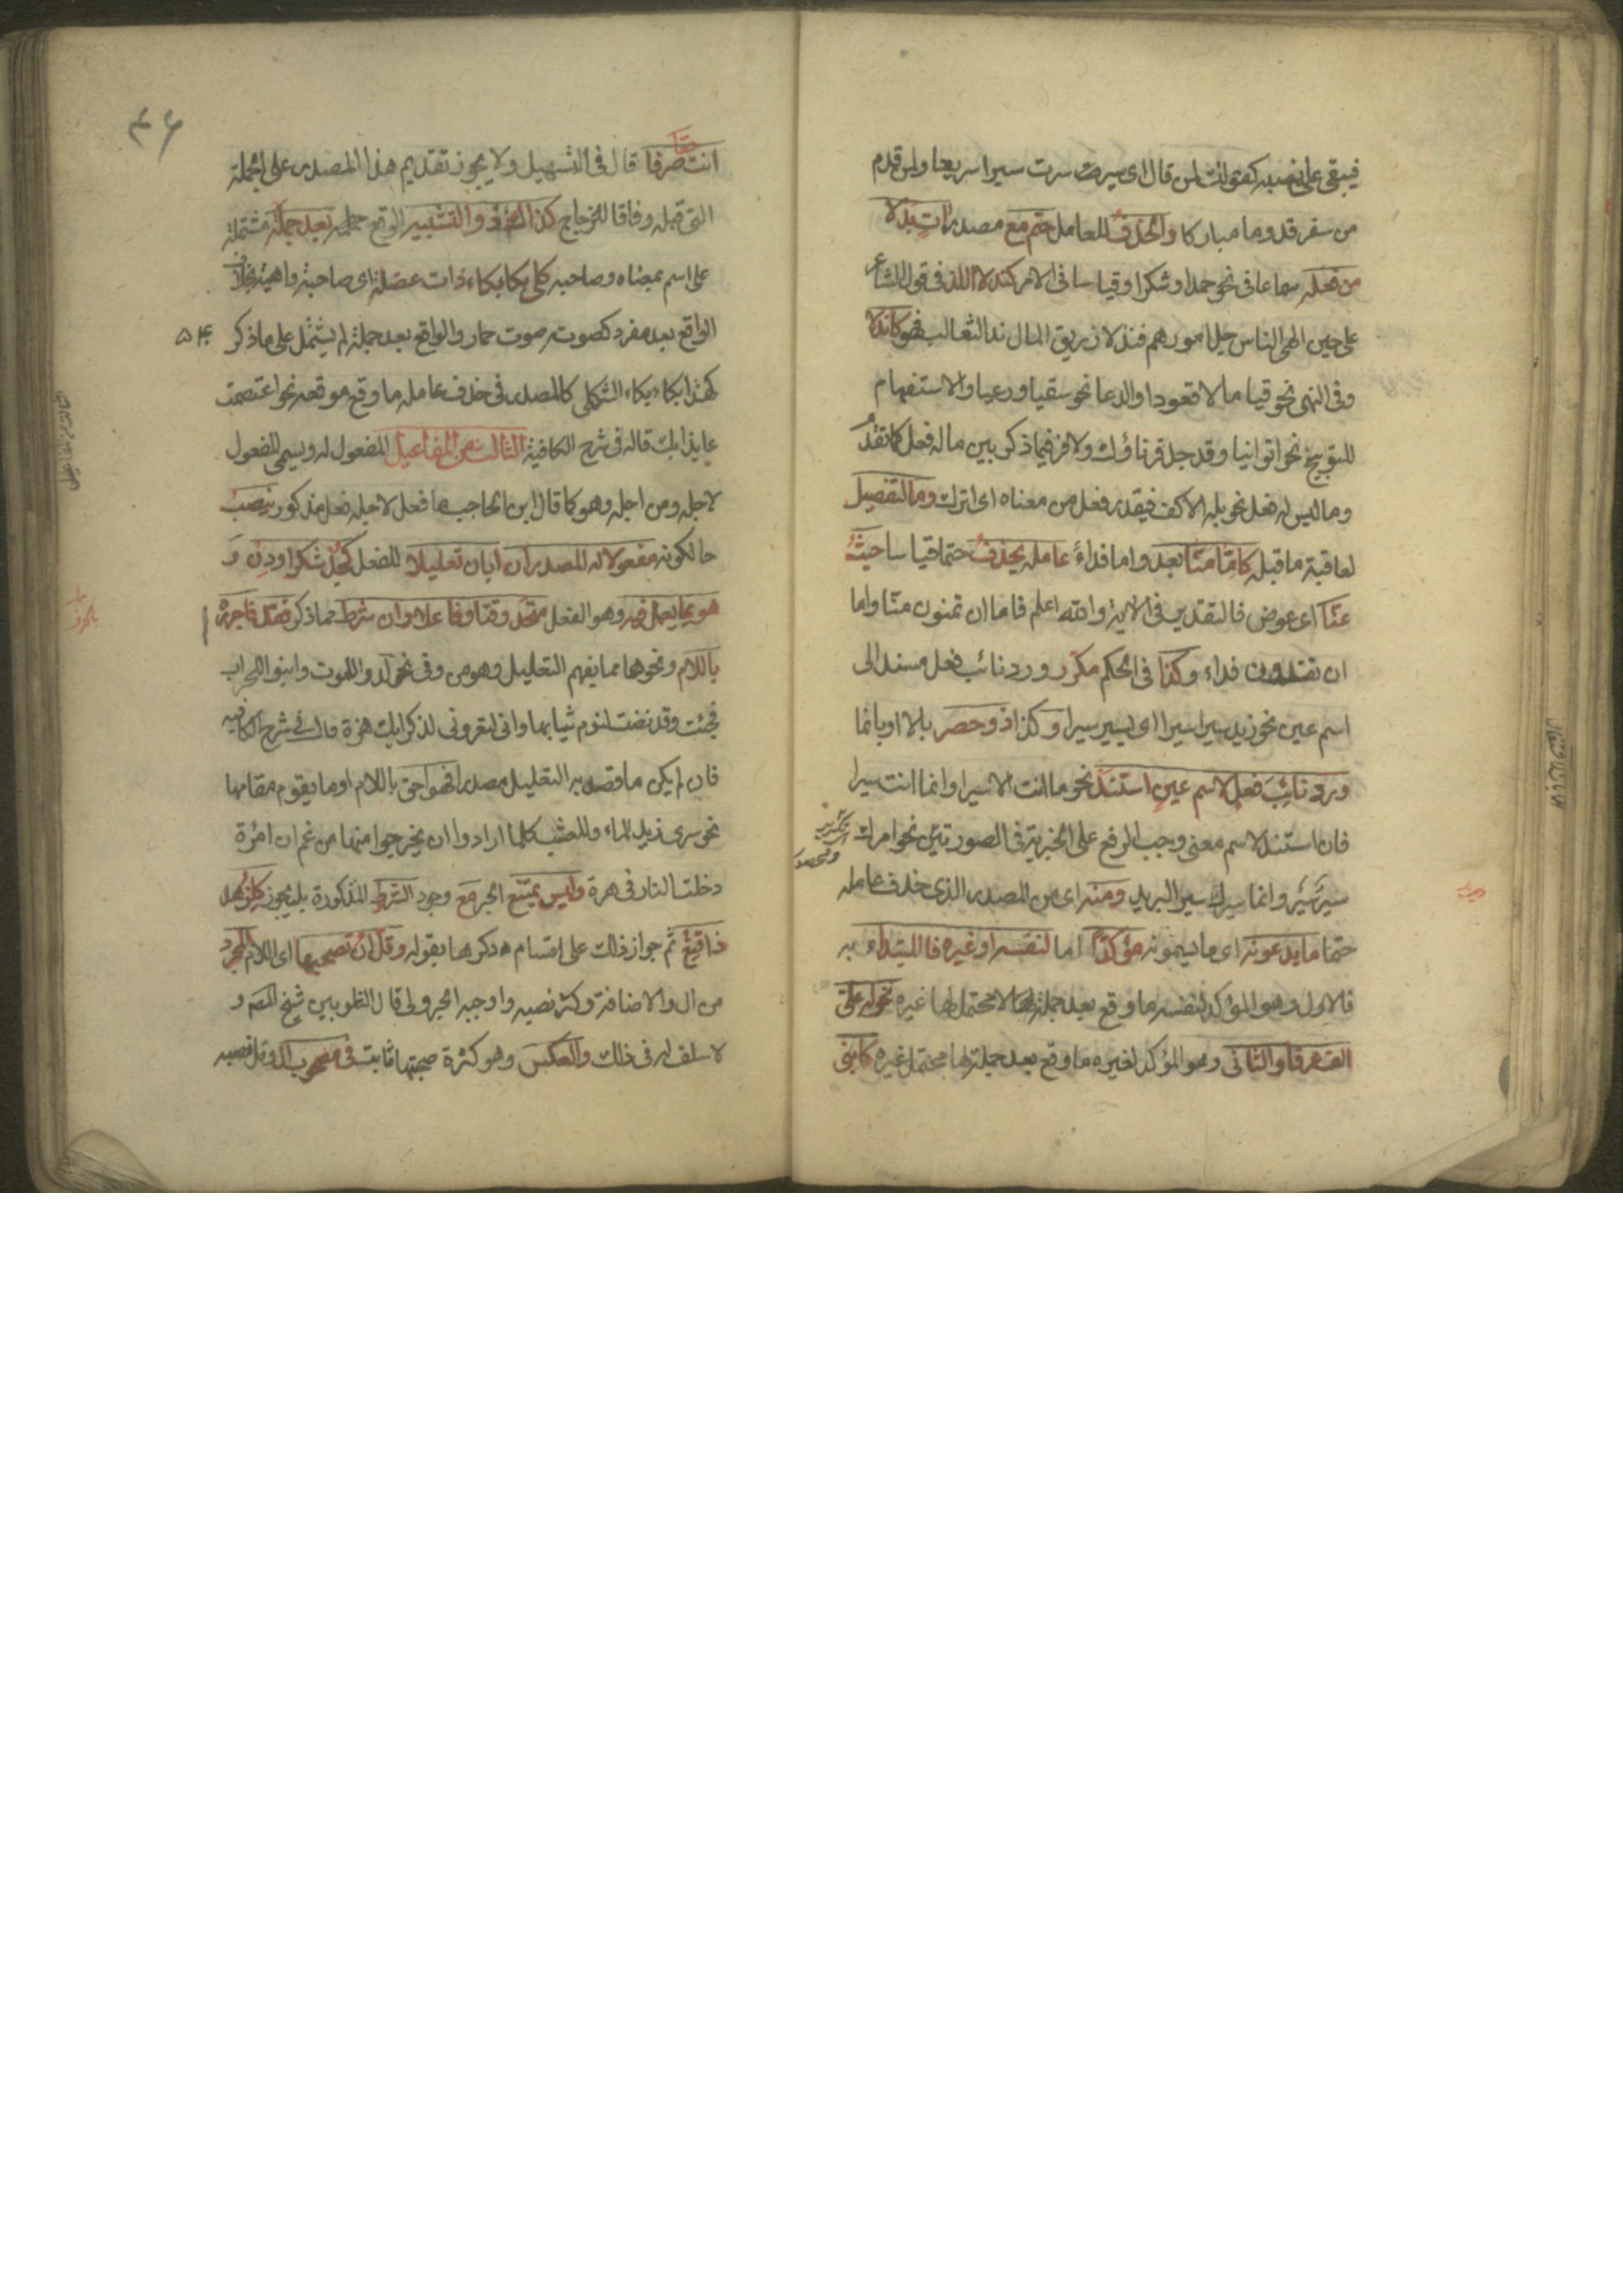 فيبقى على نصبه كقولك لمن قال اى سير سرت سيرا سريعا ولمن قدم
من سفر قدوما مباركا والحذف للعامل حتم مع مصدر اٰتٍ بَدَلا
من فعله سماعا فى نحو حمدا وشكرا وقياسا فى الامر كندلا اللذ فى قول الشاعر
على حين الهى الناس جل امورهم فندلا زريق المال ندل الثعالب فهو كاندلا
وفى النهى نحو قياما لا قعودا والدعا نحو سقيا ورعيا والاستفهام
للتوبيخ نحو اتوانيا وقد جد قرناؤك ولا فرق فيما ذكر بين ما له فعل كما تقدّم
وما ليس له فعل نحو بله الاكف فيقدر فعل من معناه اى اترك وما لتفصيل
لعاقبة ما قبله كامّا منّا بعد واما فداءً عامله يحذف حتما قياسا حيث
عنّا اى عوض فالتقدير فى الاية والله اعلم فاما ان تمنون منّا واما
ان تفدون فداء وكذا فى الحكم مكرّر ورد نائب فعل مسند الى
اسم عين نحو زيد سيرا سيرا اى يسير سيرا وكذا ذو حصر بالا او بانما
ورد نائِبَ فعلٍ لاسم عينٍ استند نحو ما انت الا سيرا وانما انت سيرا
فان استند لاسم معنى وجب الرفع على الخبرية فى الصورتين نحو امرك
سيرٌ سيرٌ وانما سيرك سير البريد ومنه اى من المصدر الذى حذف عامله
حتما ما يدعونه اى ما يسمونه مؤكدًا اما لنفسه او غيره فالمبتداء به
فالاول وهو المؤكد لنفسه ما وقع بعد جملة لا محتمل لها غيره نحو له علىّ
الف عرفا والثانى وهو المؤكد لغيره ما وقع بعد جملة لها محتمل غيره كابنى
٤٦
انت حقا صرفا قال فى التسهيل ولا يجوز تقديم هذا المصدر على الجملة
التى قبله وفاقا للزجاج كذاك ذو التشبيه الواقع بعد جملة مشتملة
على اسم بمعناه وصاحبه كلى بكا بكاء ذات عضلة اى صاحبة داهية بخلاف
الواقع بعد مفرد كصوته صوت حمار والواقع بعد جملة لم يشتمل على ما ذكر
٥٤
كهذا بكاء بكاء الثكلى كالمصدر فى حذف عامله ما وقع موقعه نحو اعتصمت
عايذا بك قاله فى شرح الكافية الثالث من المفاعيل المفعول له ويسمى المفعول
لاجله ومن اجله وهو كما قال ابن الحاجب ما فعل لاجله فعل مذكور ينصب
حالكونه مفعولا له المصدر ان ابان تعليلا للفعل كجُدْ شكرا ودِنْ وَ
هو بما يعمل فيه وهو الفعل متحد وقتا وفاعلا وان شرط مما ذكر فقد فاجرره
باللام ونحوها مما يفهم التعليل وهو من وفى نحو لدوا للموت وابنوا للخراب
فجئت وقد نضت لنوم ثيابها وانى لتعرونى لذكراك هزة قال فى شرح الكافيه
فان لم يكن ما قصد به التعليل مصدرا فهو احق باللام او ما يقوم مقامها
نحو سرى زيد للماء وللعشب كلما ارادوا ان يخرجوا منها من غم ان امرٔة
دخلت النار فى هرة وليس يمتنع الجر مع وجود الشرط المذكورة بل يجوز كلزهد
ذا قنِع ثم جواز ذلك على اقسام ذكرها بقوله وقلّ ان تصحبها اى اللام المجرد
من ال والاضافة وكثر نصبه واوجبه الجزولى قال الشلوبين شيخ المصـ و
لا سلف له فى ذلك والعكس وهو كثرة صحبتها ثابت فى مصحوب ال وقل نصبه